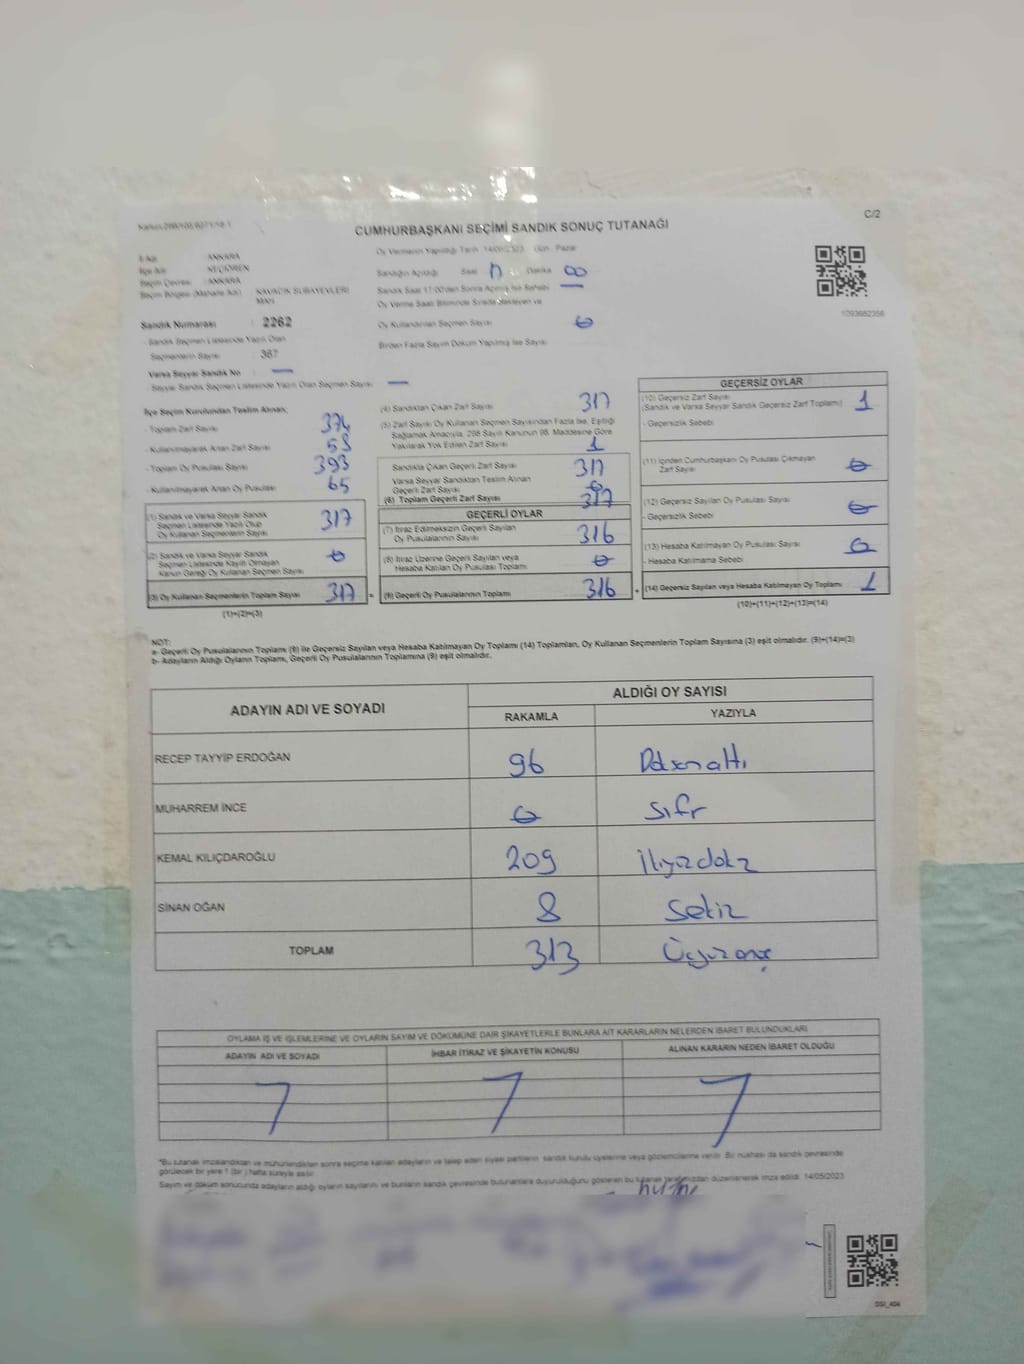 C/2
CUMHURBAŞKANI SEÇİMİ SANDIK SONUÇ TUTANAĞI
İl Adı : ANKARA
İlçe Adı : KEÇİÖREN
Seçim Çevresi : ANKARA
Seçim Bölgesi (Mahalle Adı) : KAVACIK SUBAYEVLERİ MAH.
Sandık Numarası : 2262
- Sandık Seçmen Listesinde Yazılı Olan
Seçmenlerin Sayısı : 367
Varsa Seyyar Sandık No : —
- Seyyar Sandık Seçmen Listesinde Yazılı Olan Seçmen Sayısı : —
Oy Vermenin Yapıldığı Tarih : 14/05/2023 Gün : Pazar
Sandığın Açıldığı Saat 17 Dakika 00
Sandık Saat 17:00'den Sonra Açılmış İse Sebebi —
Oy Verme Saati Bitiminde Sırada Bekleyen ve
Oy Kullandırılan Seçmen Sayısı 0
Birden Fazla Sayım Döküm Yapılmış İse Sayısı
1093682356
İlçe Seçim Kurulundan Teslim Alınan;
- Toplam Zarf Sayısı 376
- Kullanılmayarak Artan Zarf Sayısı 58
- Toplam Oy Pusulası Sayısı 393
- Kullanılmayarak Artan Oy Pusulası 65
(1) Sandık ve Varsa Seyyar Sandık
Seçmen Listesinde Yazılı Olup
Oy Kullanan Seçmenlerin Sayısı 317
(2) Sandık ve Varsa Seyyar Sandık
Seçmen Listesinde Kayıtlı Olmayan
Kanun Gereği Oy Kullanan Seçmen Sayısı 0
(3) Oy Kullanan Seçmenlerin Toplam Sayısı 317 =
(1)+(2)=(3)
(4) Sandıktan Çıkan Zarf Sayısı 317
(5) Zarf Sayısı Oy Kullanan Seçmen Sayısından Fazla İse, Eşitliği
Sağlamak Amacıyla, 298 Sayılı Kanunun 98. Maddesine Göre
Yakılarak Yok Edilen Zarf Sayısı 1
Sandıkta Çıkan Geçerli Zarf Sayısı 317
Varsa Seyyar Sandıktan Teslim Alınan
Geçerli Zarf Sayısı 0
(6) Toplam Geçerli Zarf Sayısı 317
GEÇERLİ OYLAR
(7) İtiraz Edilmeksizin Geçerli Sayılan
Oy Pusulalarının Sayısı 316
(8) İtiraz Üzerine Geçerli Sayılan veya
Hesaba Katılan Oy Pusulası Toplamı 0
(9) Geçerli Oy Pusulalarının Toplamı 316 +
GEÇERSİZ OYLAR
(10) Geçersiz Zarf Sayısı
(Sandık ve Varsa Seyyar Sandık Geçersiz Zarf Toplamı) 1
- Geçersizlik Sebebi
(11) İçinden Cumhurbaşkanı Oy Pusulası Çıkmayan
Zarf Sayısı 0
(12) Geçersiz Sayılan Oy Pusulası Sayısı 0
- Geçersizlik Sebebi
(13) Hesaba Katılmayan Oy Pusulası Sayısı 0
- Hesaba Katılmama Sebebi
(14) Geçersiz Sayılan veya Hesaba Katılmayan Oy Toplamı 1
(10)+(11)+(12)+(13)=(14)
NOT:
a- Geçerli Oy Pusulalarının Toplamı (9) ile Geçersiz Sayılan veya Hesaba Katılmayan Oy Toplamı (14) Toplamları, Oy Kullanan Seçmenlerin Toplam Sayısına (3) eşit olmalıdır. (9)+(14)=(3)
b- Adayların Aldığı Oyların Toplamı, Geçerli Oy Pusulalarının Toplamına (9) eşit olmalıdır.
ADAYIN ADI VE SOYADI ALDIĞI OY SAYISI
RAKAMLA YAZIYLA
RECEP TAYYİP ERDOĞAN 96 Doksanaltı
MUHARREM İNCE 0 Sıfır
KEMAL KILIÇDAROĞLU 209 İkiyüzdokuz
SİNAN OĞAN 8 Sekiz
TOPLAM 313 Üçyüzonüç
OYLAMA İŞ VE İŞLEMLERİNE VE OYLARIN SAYIM VE DÖKÜMÜNE DAİR ŞİKAYETLERLE BUNLARA AİT KARARLARIN NELERDEN İBARET BULUNDUKLARI
ADAYIN ADI VE SOYADI İHBAR İTİRAZ VE ŞİKAYETİN KONUSU ALINAN KARARIN NEDEN İBARET OLDUĞU
*Bu tutanak imzalandıktan ve mühürlendikten sonra seçime katılan adayların ve talep eden siyasi partilerin sandık kurulu üyelerine veya gözlemcilerine verilir. Bir nüshası da sandık çevresinde
görülecek bir yere 1 (bir) hafta süreyle asılır.
Sayım ve döküm sonucunda adayların aldığı oyların sayılarını ve bunların sandık çevresinde bulunanlara duyurulduğunu gösteren bu tutanak tarafımızdan düzenlenerek imza edildi. 14/05/2023